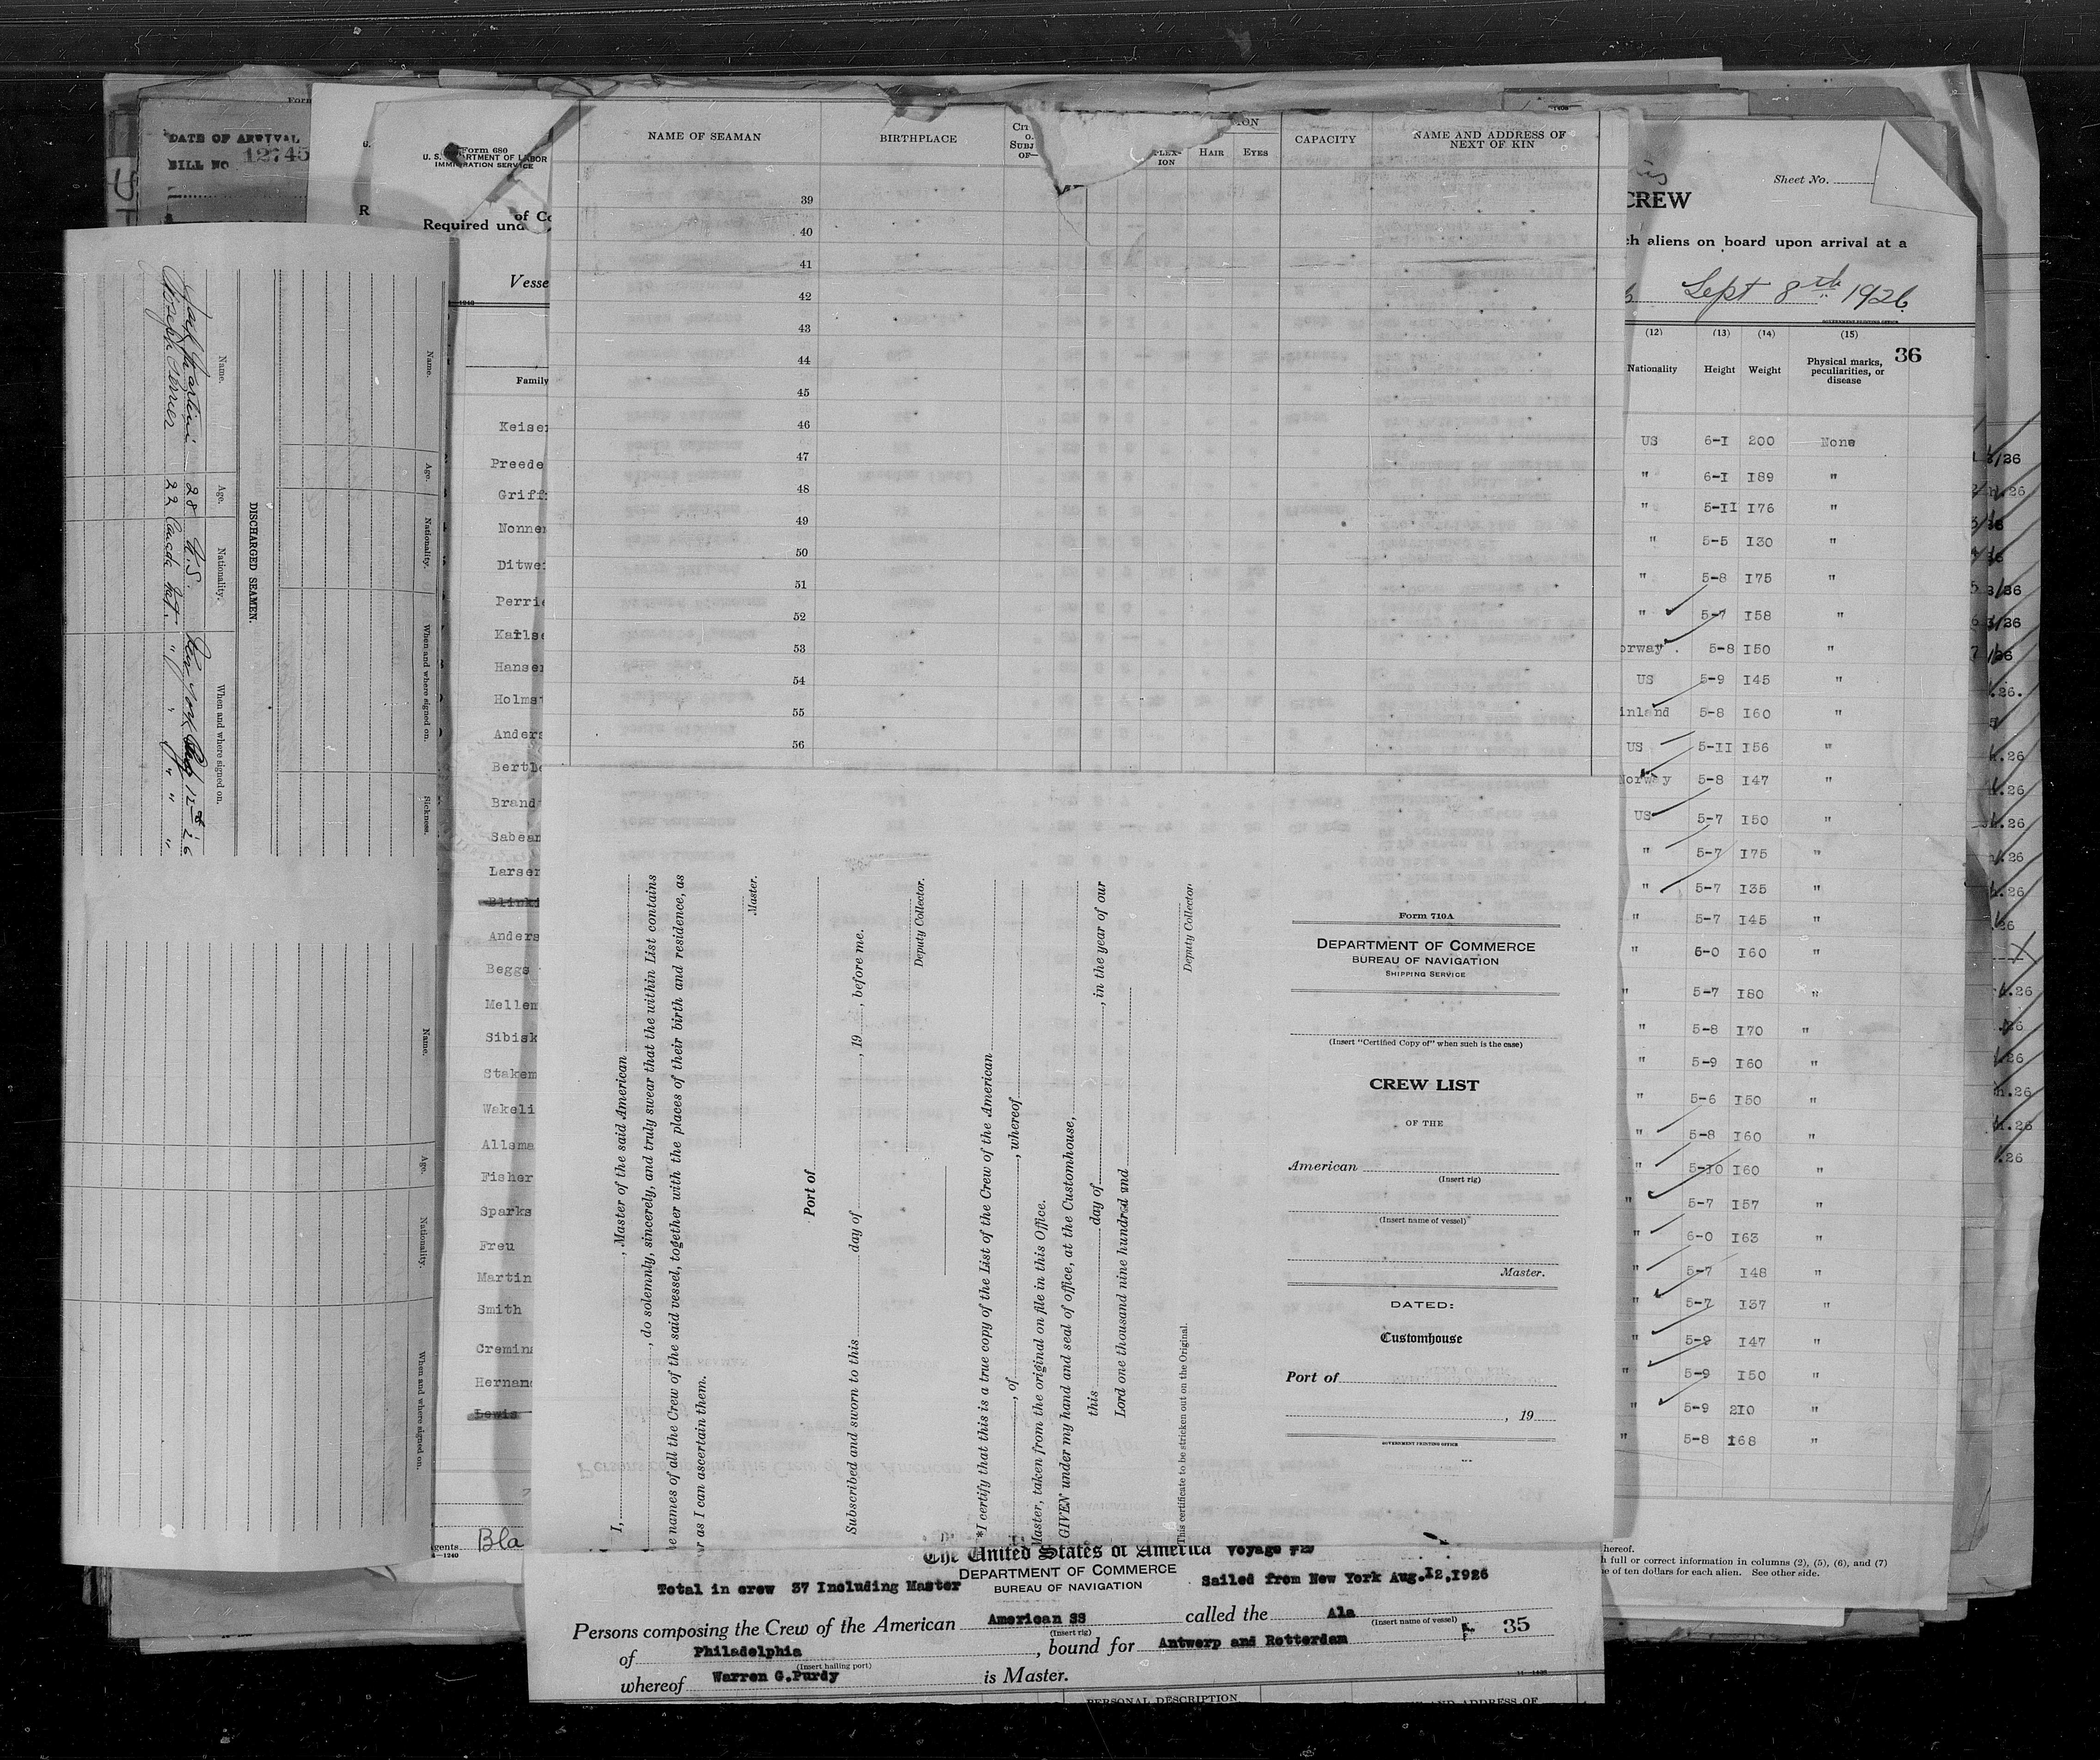 DATE OF ARRIVAL
BILL NO. 12745
Name.
Age.
Nationality.
When and where signed on.
Sickness.
DISCHARGED SEAMEN.
Name.
Age.
Nationality.
When and where signed on.
28 U.S. New York 12th 26
Joseph 22 Canada " " " "
Name.
Age.
Nationality.
When and where signed on.
Form 680
U. S. DEPARTMENT OF LABOR
IMMIGRATION SERVICE
of Co
Required und
Vesse
Family
Keiser
Preede
Griff
Nonner
Ditwe
Perrie
Karlse
Hanser
Holms
Anders
Bertle
Brand
Sabean
Larser
Blinki
Anders
Beggs
Mellem
Sibisk
Stakem
Wakeli
Allema
Fisher
Sparks
Freu
Martin
Smith
Cremina
Hernand
Lewis
gents Bla
NAME OF SEAMAN
BIRTHPLACE
CAPACITY
NAME AND ADDRESS OF NEXT OF KIN
PLEX-ION
HAIR
EYES
39
40
41
42
43
44
45
46
47
48
49
50
51
52
53
54
55
56
I, , Master of the said American
, do solemnly, sincerely, and truly swear that the within List contains
e names of all the Crew of the said vessel, together with the places of their birth and residence, as
r as I can ascertain them.
Master.
Port of
Subscribed and sworn to this day of , 19 , before me.
Deputy Collector.
*I certify that this is a true copy of the List of the Crew of the American
, of , whereof
Master, taken from the original on file in this Office.
GIVEN under my hand and seal of office, at the Customhouse,
this day of , in the year of our
Lord one thousand nine hundred and
Deputy Collector.
This certificate to be stricken out on the Original.
Form 710A
DEPARTMENT OF COMMERCE
BUREAU OF NAVIGATION
SHIPPING SERVICE
(Insert "Certified Copy of" when such is the case)
CREW LIST
OF THE
American
(Insert rig)
(Insert name of vessel)
Master.
DATED:
Customhouse
Port of
, 19
GOVERNMENT PRINTING OFFICE
The United States of America Voyage
Total in crew 37 Including Master
DEPARTMENT OF COMMERCE
BUREAU OF NAVIGATION
Sailed from New York Aug.12,1926
Persons composing the Crew of the American American SS called the Ala
(Insert rig)
(Insert name of vessel)
35
of Philadelphia , bound for Antwerp and Rotterdam
(Insert hailing port)
whereof Warren G.Purdy is Master.
PERSONAL DESCRIPTION
AND ADDRESS OF
Sheet No.
CREW
ch aliens on board upon arrival at a
Sept 8th 1926
GOVERNMENT PRINTING OFFICE
(12) (13) (14) (15)
36
Nationality Height Weight Physical marks, peculiarities, or disease
US 6-I 200 None
" 6-I I89 "
" 5-II I76 "
" 5-5 I30 "
" 5-8 I75 "
" 5-7 I58 "
orway 5-8 I50 "
US 5-9 I45 "
inland 5-8 I60 "
US 5-II I56 "
Norway 5-8 I47 "
US 5-7 I50 "
" 5-7 I75 "
" 5-7 I35 "
" 5-7 I45 "
" 5-0 I60 "
" 5-7 I80 "
" 5-8 I70 "
" 5-9 I60 "
" 5-6 I50 "
" 5-8 I60 "
" 5-I0 I60 "
" 5-7 I57 "
" 6-0 I63 "
" 5-7 I48 "
" 5-7 I37 "
" 5-9 I47 "
" 5-9 I50 "
" 5-9 2I0 "
" 5-8 I68 "
hereof.
h full or correct information in columns (2), (5), (6), and (7)
e of ten dollars for each alien. See other side.